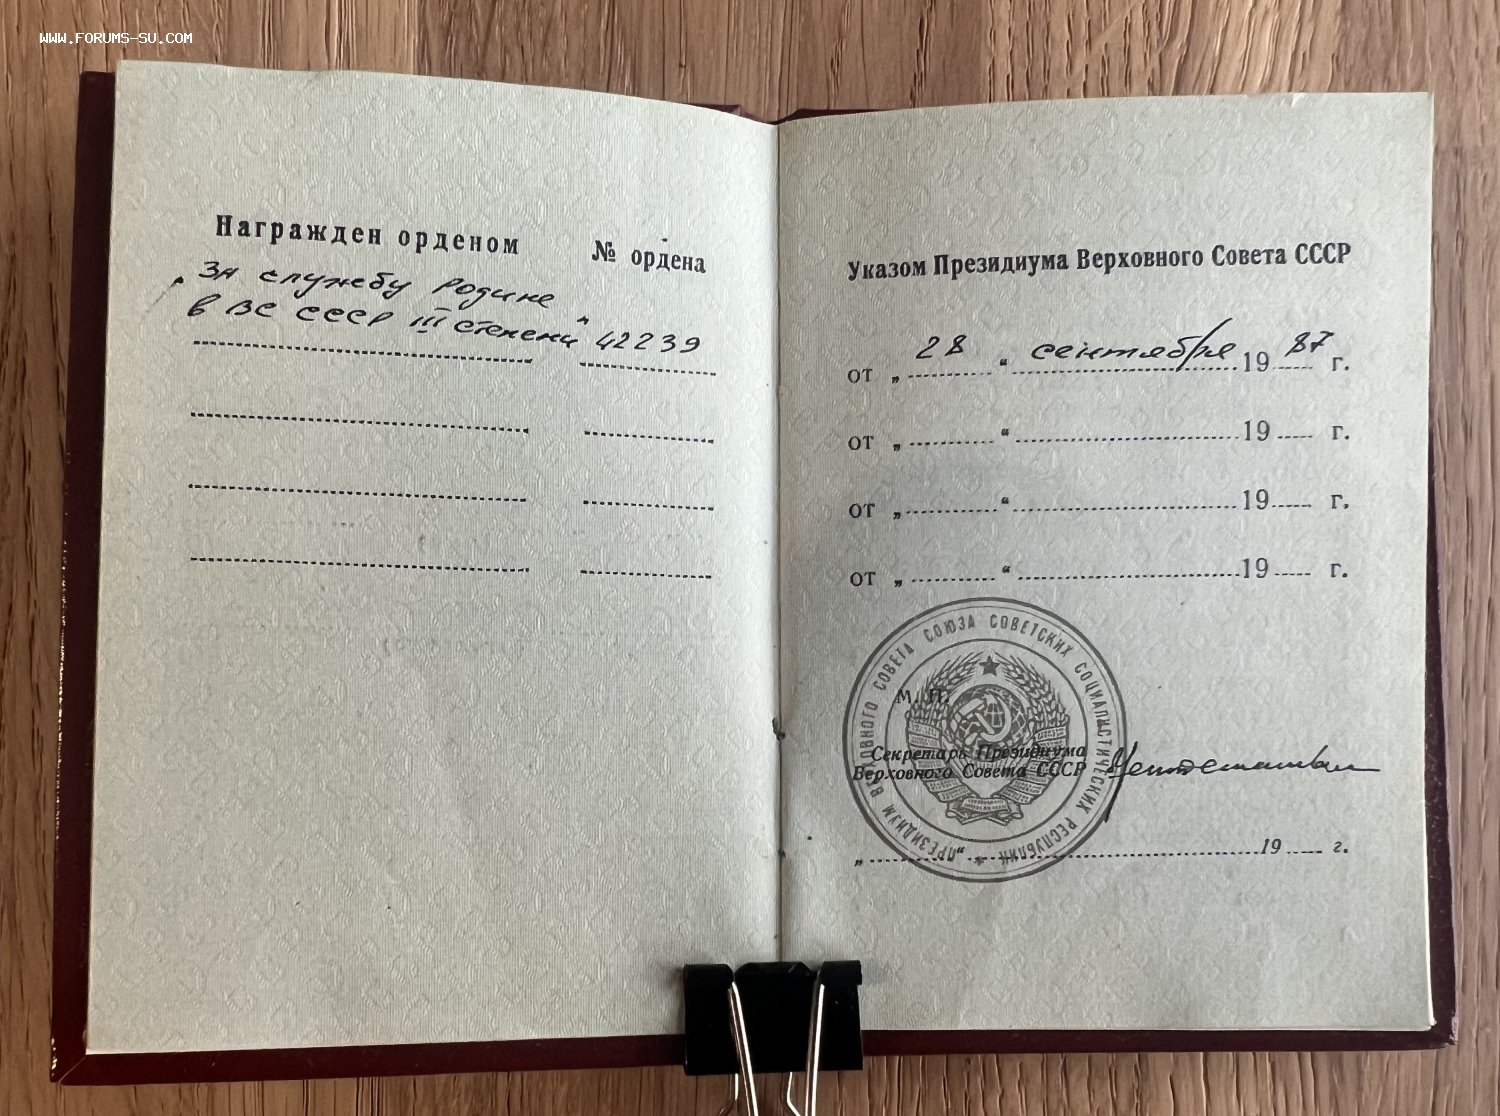 WWW.FORUMS-SU.COM
Награжден орденом № ордена
„За службу Родине
в ВС СССР III степени“ 42239
Указом Президиума Верховного Совета СССР
от „ 28 “ сентября 19 87 г.
от „ “ 19 г.
от „ “ 19 г.
от „ “ 19 г.
ПРЕЗИДИУМ ВЕРХОВНОГО СОВЕТА СОЮЗА СОВЕТСКИХ СОЦИАЛИСТИЧЕСКИХ РЕСПУБЛИК
М. П.
Секретарь Президиума
Верховного Совета СССР
„ “ 19 г.